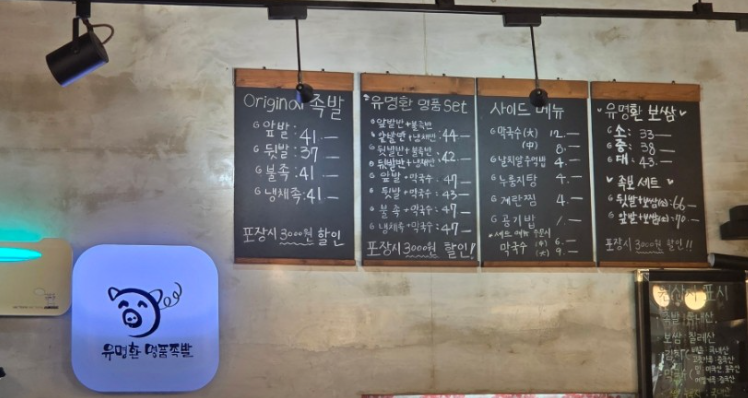 Original 족발
앞발 : 41.—
뒷발 : 37.—
불족 : 41.—
냉채족 : 41.—
포장시 3000원 할인
유명환 명품 Set
앞발반+불족반
앞발반+냉채반 : 44.—
뒷발반+불족반
뒷발반+냉채반 : 42.—
앞발+막국수 : 47.—
뒷발+막국수 : 43.—
불족+막국수 : 47.—
냉채족+막국수 : 47.—
포장시 3000원 할인!
사이드 메뉴
막국수(大) 12.—
(中) 8.—
날치알주먹밥 4.—
누룽지탕
계란찜 4.—
공기밥 1.—
세트 메뉴 주문시
막국수 (中) 6.—
(大) 9.—
유명환 보쌈
소 : 33.—
중 : 38.—
대 : 43.—
족보 세트
뒷발+보쌈(小) : 66.—
앞발+보쌈(小) : 70.—
포장시 3000원 할인!!
유명환 명품족발
원산지 표시
족발 국내산
보쌈 칠레산